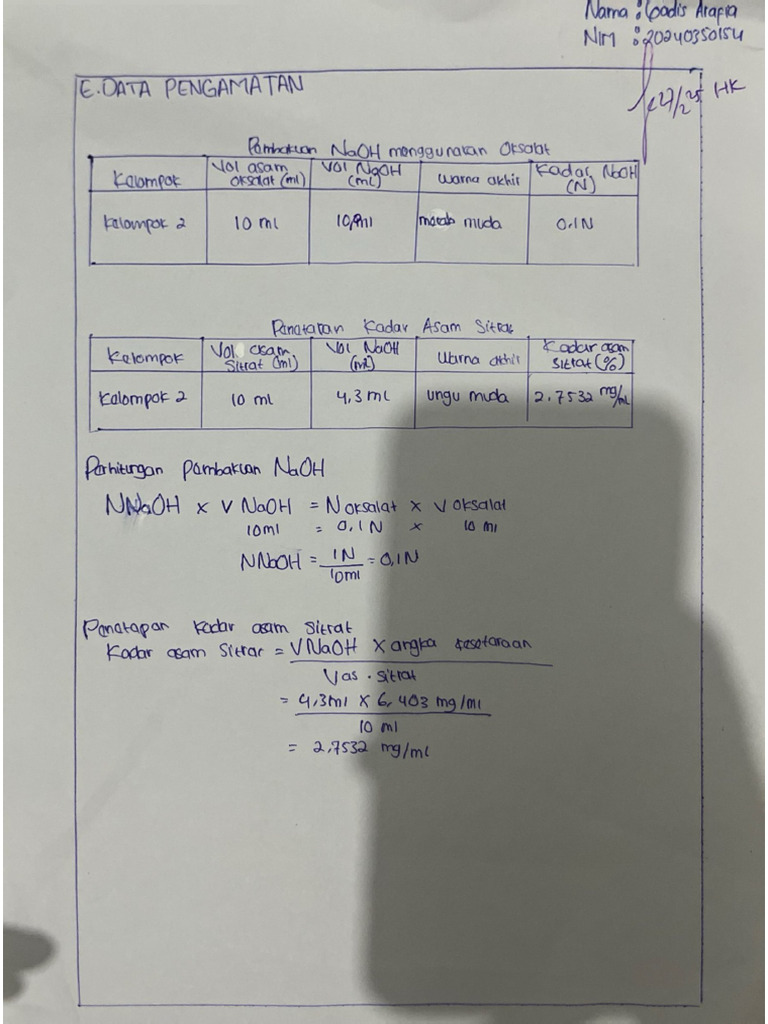 Nama : Gadis Arafia
NIM : 20240350154
27/2 25 HK
E. DATA PENGAMATAN
Pembakuan NaOH menggunakan Oksalat
Kelompok | Vol asam oksalat (ml) | Vol NaOH (mL) | Warna akhir | Kadar NaOH (N)
Kelompok 2 | 10 ml | ml | merah muda | 0.1N
Penetapan Kadar Asam Sitrat
Kelompok | Vol asam Sitrat (ml) | Vol NaOH (ml) | Warna akhir | Kadar asam sitrat (%)
Kelompok 2 | 10 ml | 4,3 mL | ungu muda | 2.7532 mg/mL
Perhitungan Pembakuan NaOH
NNaOH x V NaOH = N oksalat x V oksalat
10ml = 0,1 N x 10 ml
NNaOH = 1N/10ml = 0,1N
Penetapan Kadar asam Sitrat
Kadar asam Sitrar = VNaOH x angka kesetaraan
V as. sitrat
= 4,3ml x 6,403 mg/ml
10 ml
= 2,7532 mg/mL